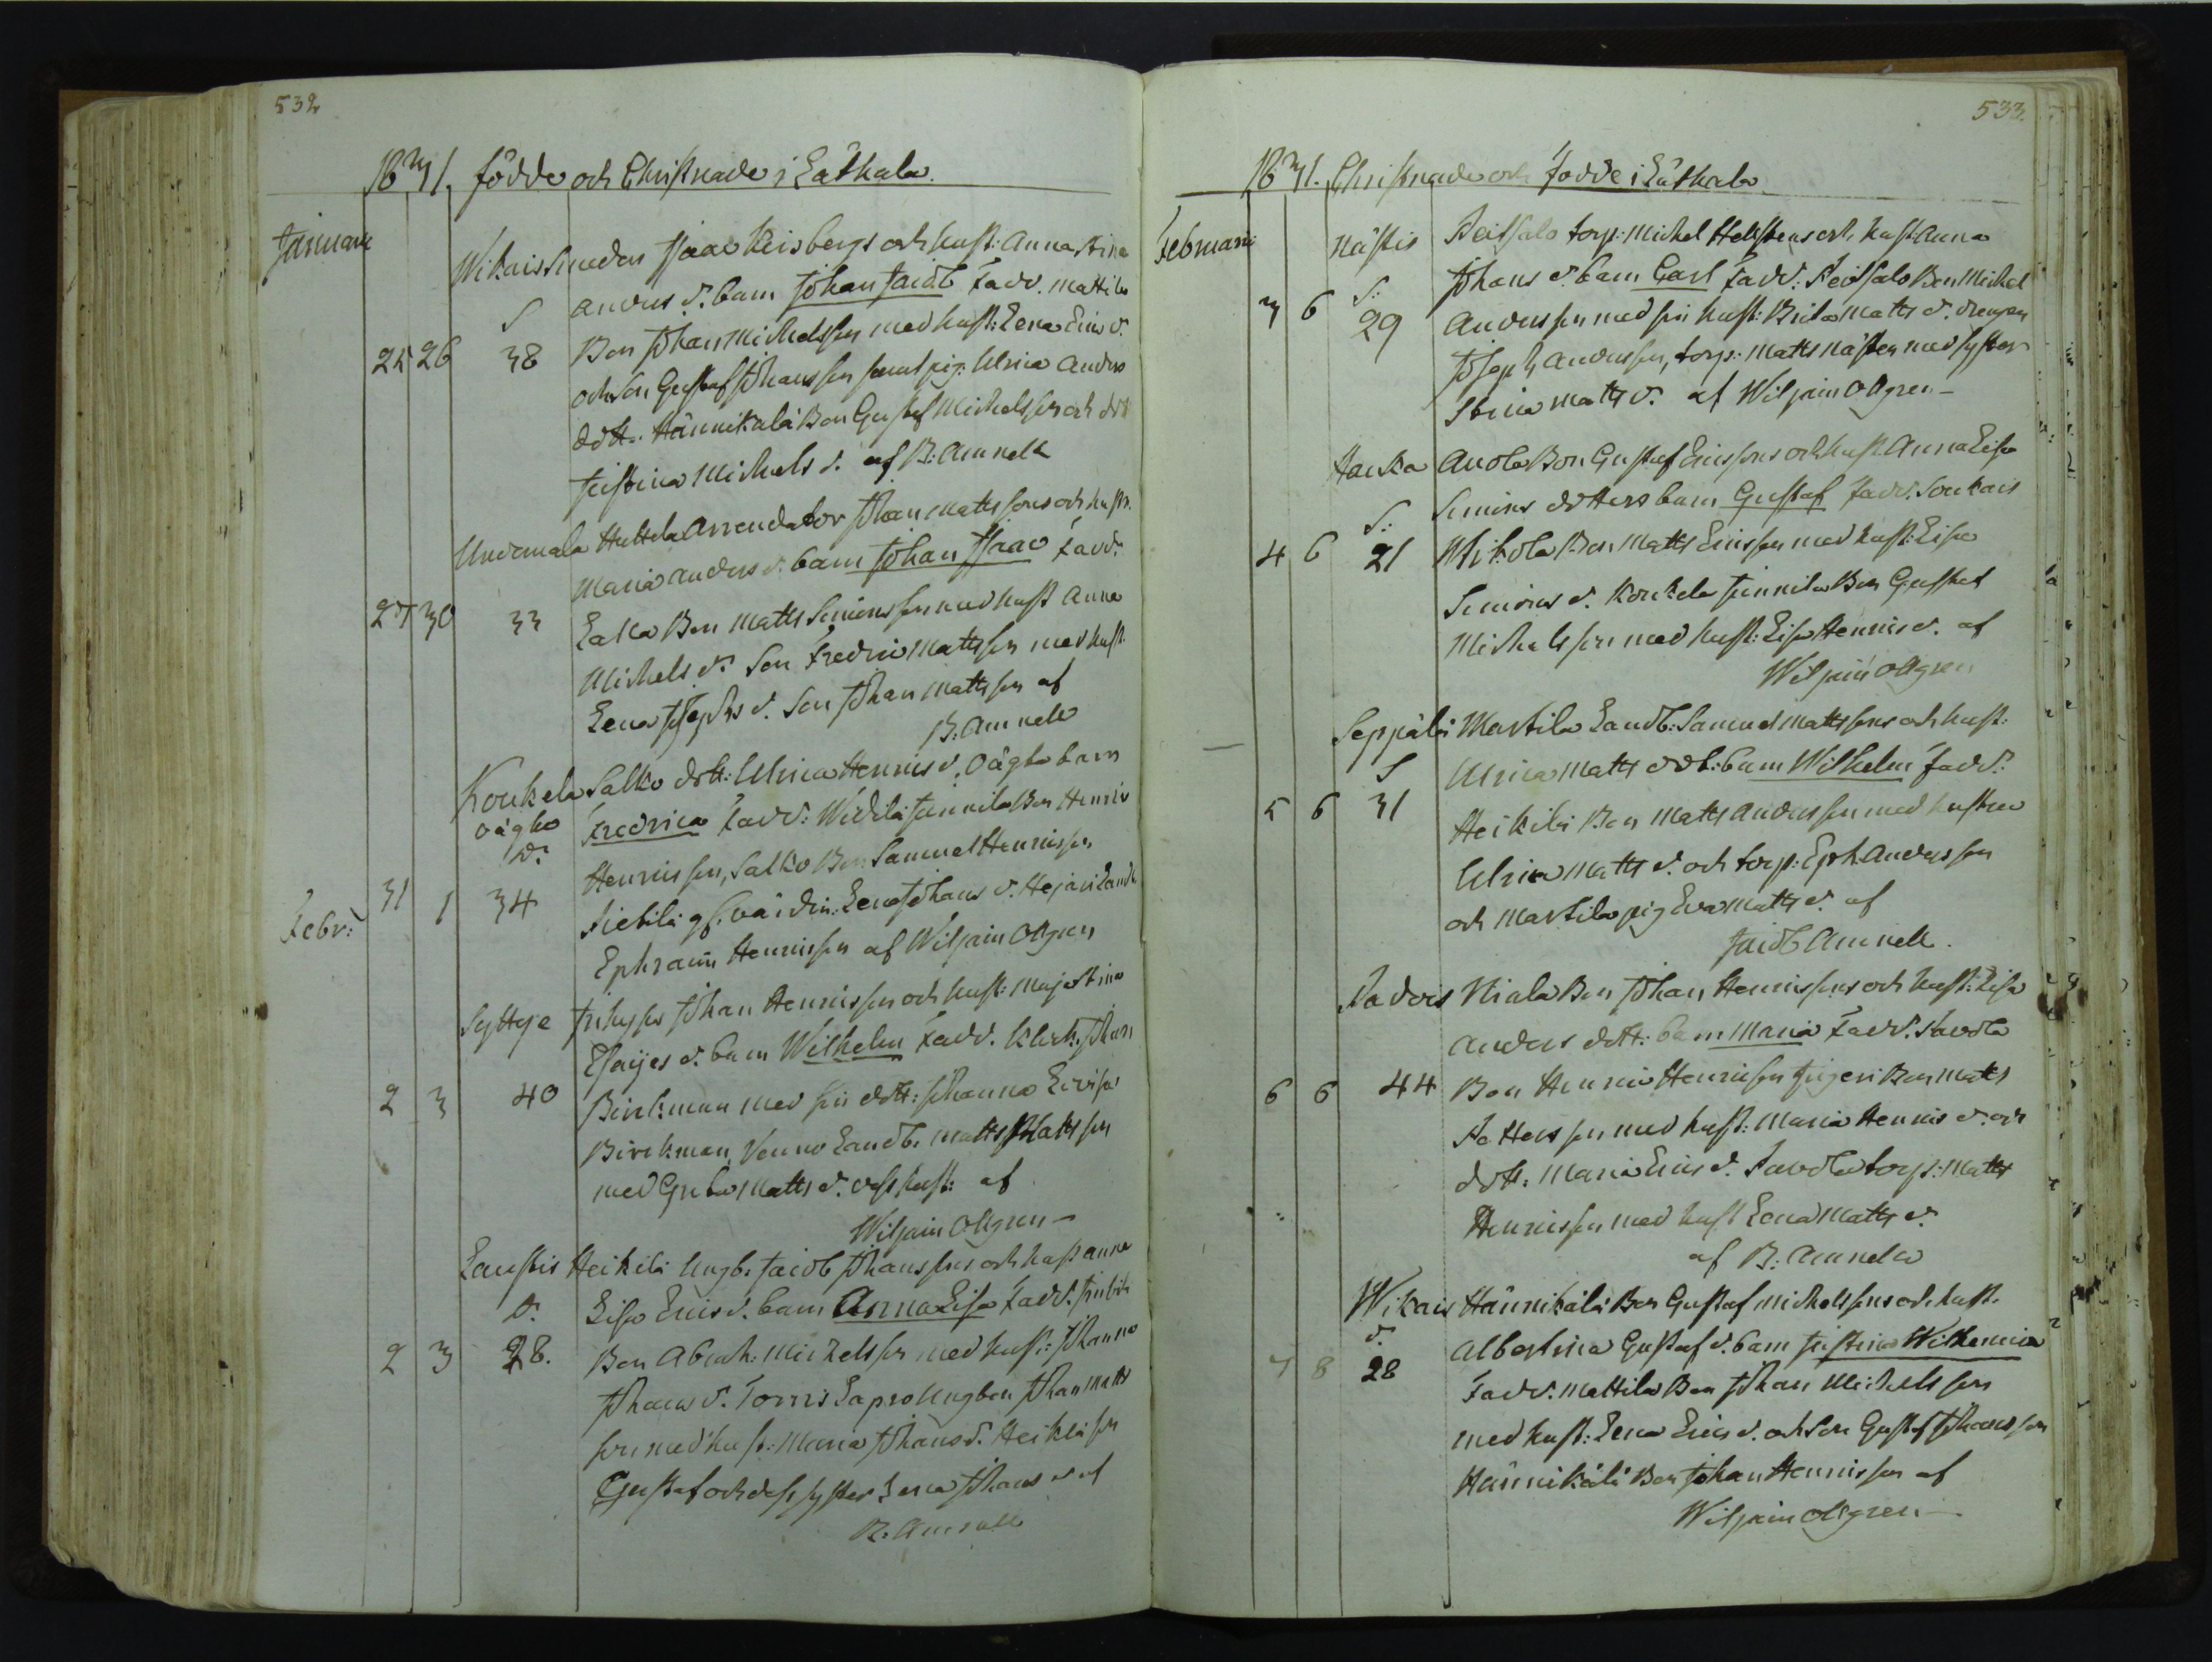 532
1831. födde och Christnade i Euthala.
Januari
Wikais Smeden Isaac Reisbergs och hust: Anna Stina
S Anders d. barn Johan Jacob Fadd. Mattila
25 26 38 Bon Johan Michelsson med hust: Lena Erics d.
och Son Gustaf Johansson samt pig: Ulrica Anders
dott. Hännikälä Bon Gustaf Michelsson och
Justina Michels d. af B: Amnell
Undamala Huttela Arrendator Johan Mattssons och hust.
Maria Anders d. barn Johan Isaac Fadd.
27 30 33 Lalla Bon Matts Simonsson med hust Anna
Michels d. Son Fredric Mattsson med hust
Lena Josephs d. Son Johan Mattsson af
B: Amnell
Koukela Salko dott: Ulrica Henrics d. oägta barn
oägta Fredrica Fadd: Widilä Junnila Bon Henric
d. Henricsson, Salko Bon Samuel Henricsson
Febr: 31 1 34 Lena Johans d. Hejari Landb
Ephraim Henricsson af Wiljam Ollgren
Syttye Johan Henricsson och hust: Maja Stina
Esaijes d. barn Wilhelm Fadd. Klock: Johan
2 3 40 Birckman med sin dott: Johanna Lovisa
Birckman, Venno Landb. Matts Mattsson
med Greta Matts d. dess hust: af
Wiljam Ollgren
Laustis Heikilä Ungb: Jacob Johanssons och hust Anna
d. Lisa Erics d. barn Anna Lisa Fadd.
2 3 28. Bon Abrah: Michelsson med hust: Johanna
Johans d. Torris Sapro Ungbon Johan Matts
son med hust: Maria Johans d. Heikilä son
Gustaf och dess syster Lena Johans d. af
B: Amnell
533.
1831. Christnade och födde i Euthala
Februari
Nästis Seitsalo torp: Michel Hellstens och hust Anna
S: Johans d. barn Carl Fadd: Seitsalo Bon Michel
3 6 29 Andersson med sin hust: Brita Matts d. drengen
Joseph Andersson, torp: Matts Nästen med syster
Stina Matts d. af Wiljam Ollgren
Hanka Anola Bon Gustaf Ericssons och hust Anna Lisa
S: Simons dotters barn Gustaf Fadd. Soukais
4 6 21 Bon Matts Ericsson med hust: Lisa
Simons d. Koukela Junnila Bon Gustaf
Michelsson med hust: Lisa Henrics d. af
Wiljam Ollgren
Seppälä Martila Landb: Samuel Mattssons och hust:
S Ulrica Matts dott: barn Wilhelm Fadd.
5 6 31 Heikilä Bon Matts Andersson med hustru
Ulrica Matts d. och torp: Eph Andersson
och Martila pig Eva Matts d. af
Jacob Amnell.
Niala Bon Johan Henricssons och hust: Lisa
Anders dott: barn Maria Fadd. Savola
6 6 44 Bon Henric Henricsson Bon Matts
med hust: Maria Henrics d. och
dott: Maria Erics d. Savola torp: Matts
Henricsson med hust Lena Matts d.
af B: Amnell
Wikais Hännikälä Bon Gustaf Michelssons och hust.
d. Albertina Gustaf d. barn Justina Wilhemina
7 8 28 Fadd. Mattila Bon Johan Michelsson
med hust: Lena Erics d. och Son Gustaf Johansson
Hännikälä Bon Johan Henricsson af
Wiljam Ollgren